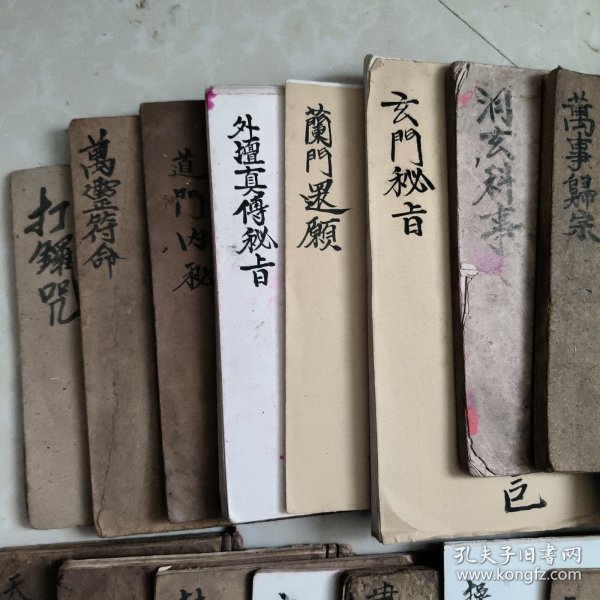 打鑼咒
萬靈符命
道門内秘
外壇真傳秘旨
蘭門還願
玄門秘旨
巳
科事
萬事歸宗
天
孔夫子旧书网
www.kongfz.com